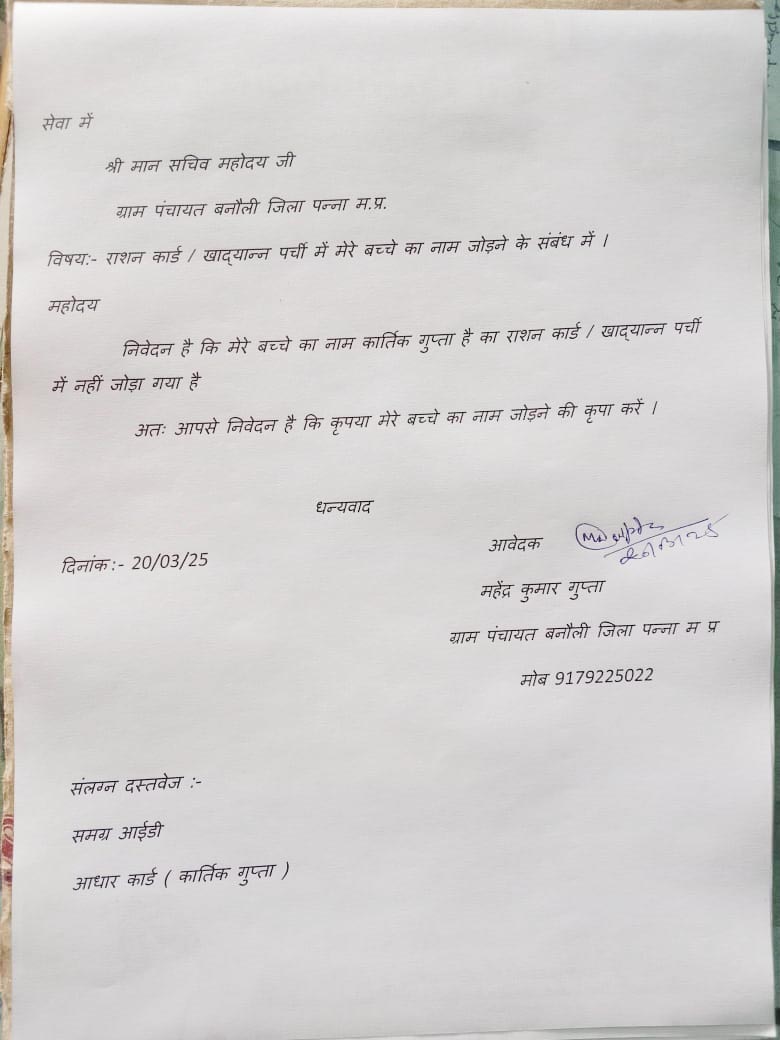 सेवा में
श्री मान सचिव महोदय जी
ग्राम पंचायत बनौली जिला पन्ना म.प्र.
विषय:- राशन कार्ड / खाद्यान्न पर्ची में मेरे बच्चे का नाम जोड़ने के संबंध में ।
महोदय
निवेदन है कि मेरे बच्चे का नाम कार्तिक गुप्ता है का राशन कार्ड / खाद्यान्न पर्ची
में नहीं जोड़ा गया है
अतः आपसे निवेदन है कि कृपया मेरे बच्चे का नाम जोड़ने की कृपा करें ।
धन्यवाद
दिनांक:- 20/03/25
आवेदक
महेंद्र कुमार गुप्ता
ग्राम पंचायत बनौली जिला पन्ना म प्र
मोब 9179225022
संलग्न दस्तवेज :-
समग्र आईडी
आधार कार्ड ( कार्तिक गुप्ता )